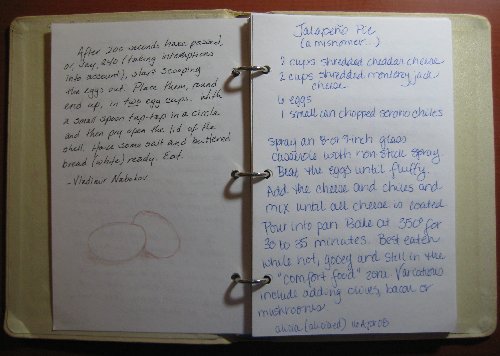 After 200 seconds have passed,
or, say, 240 (taking interruptions
into account), start scooping
the eggs out. Place them, round
end up, in two egg cups. With
a small spoon tap-tap in a circle
and then pry open the lid of the
shell. Have some salt and buttered
bread (white) ready. Eat.
-Vladimir Nabokov
Jalapeño Pie
(a misnomer...)
2 cups shredded cheddar cheese
2 cups shredded monterey jack
cheese
6 eggs
1 small can chopped serrano chiles
Spray an 8 or 9 inch glass
casserole with non stick spray.
Beat the eggs until fluffy.
Add the cheese and chiles and
mix until all cheese is coated
Pour into pan Bake at 350° for
30 to 35 minutes. Best eaten
while hot, gooey and still in the
"comfort food" zone. Variations
include adding olives, bacon or
mushrooms
alicia